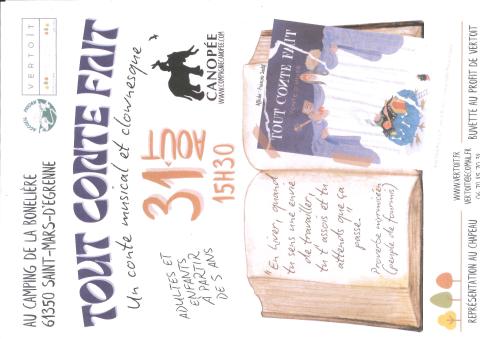 AU CAMPING DE LA BONELIÈRE
61350 SAINT-MARS-D'EGRENNE
VERTOÎT
TOUT CONTE FAIT
Un conte musical et clownesque
ADULTES ET
ENFANTS
À PARTIR
DE 5 ANS
31
AOÛT
15H30
CANOPÉE
WWW.COMPAGNIECANOPEE.COM
"En hiver, quand
tu sens une envie
de travailler,
tu t'assois et tu
attends que ça
passe."
Proverbe
(peuple de fourmis)
TOUT CONTE FAIT
REPRÉSENTATION AU CHAPEAU
WWW.VERTOIT.FR
BUVETTE AU PROFIT DE VERTOIT